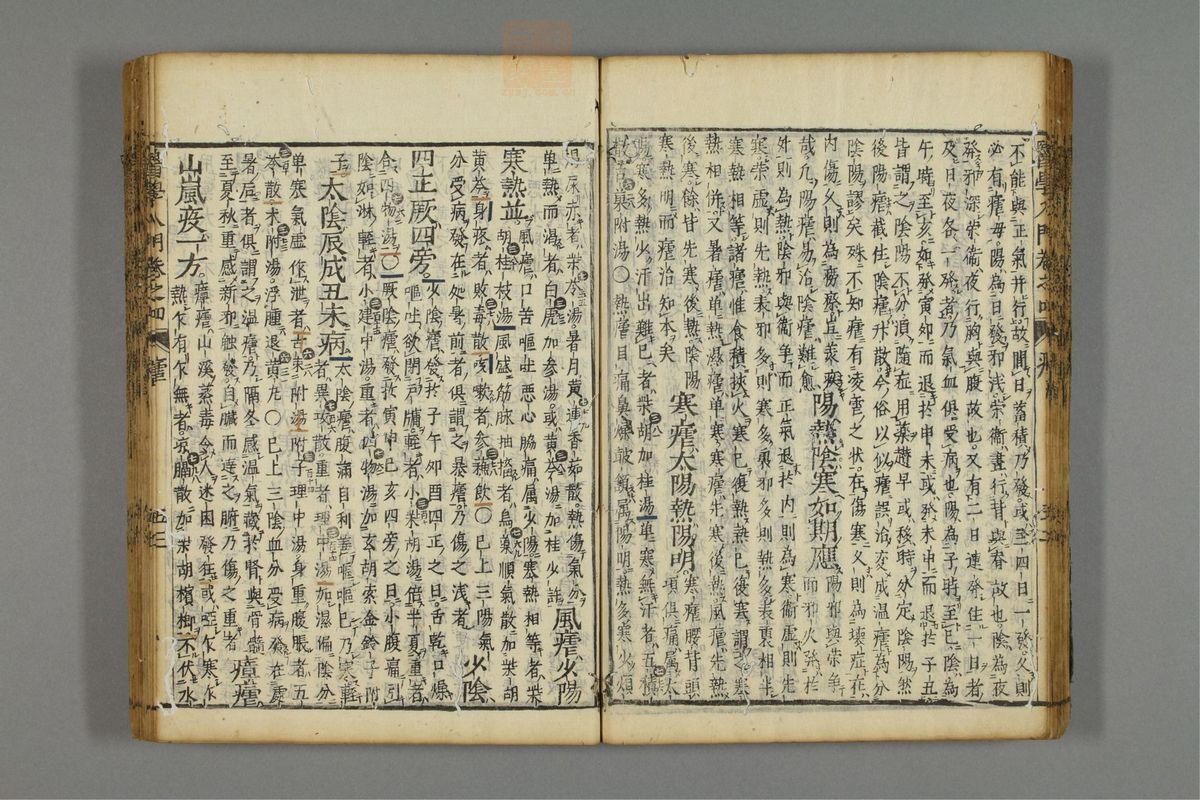 不能與正氣并行故間日蓄積乃發或三四日一發久則
必有瘧母陽為日發邪淺榮衛晝行背與脊故也陰為夜
發邪深榮衛夜行胸與腹故也又有二日連發住一日者
及日夜各一發者乃氣血俱受病也陽為子時至巳陰為
午時至亥如發寅卯而退於申未或發未申而退於子丑
皆謂之陰陽不分須隨症用藥趲早或移時分定陰陽然
後陽瘧截住陰瘧升散今俗以似瘧誤治變成溫瘧為分
陰陽謬矣殊不知瘧有凌虐之狀在傷寒又則為壞症在
內傷久則為癆瘵豈
陽熱陰寒如期應
外則為熱陰邪與衛爭而正氣退於內則為寒衛虛則先
寒榮虛則先熱表邪多則寒多裏邪多則熱多表裏相半
寒熱相等諸瘧惟食積挾火寒已復熱熱已復寒謂之寒
熱相併又暑瘧單熱濕瘧單寒寒瘧先寒後熱風瘧先熱
後寒餘皆先寒後熱陰陽
寒熱明而瘧治知本矣
寒瘧太陽熱陽明
寒瘧腰背頭項俱痛屬太
寒多熱少汗出難已者柴胡加桂湯單寒無汗者五積
附湯○熱瘧目痛鼻燥鼓頷屬陽明熱多寒少煩
尿赤者柴苓湯暑月黃連香薷散熱傷氣分
單熱而渴者白虎加參湯或黃芩湯加桂少許
風瘧少陽
寒熱並
風瘧口苦嘔吐惡心脇痛屬少陽寒熱相等者柴
胡桂枝湯風盛筋脉抽搐者烏藥順氣散加柴胡
黃芩身疼者敗毒散咳嗽者參蘇飲○已上三陽氣
分受病發在處暑前者俱謂之暴瘧乃傷之淺者
少陰
四正厥四旁
少陰瘧發於子午卯酉四正之日舌乾口燥
嘔吐欲閉戶牖輕者小柴胡湯倍半夏重者
合四物湯○厥陰瘧發於寅申巳亥四旁之日小腹痛引
陰如淋輕者小建中湯重者四物湯加玄胡索金鈴子附
子
太陰辰戌丑未病
太陰瘧腹滿自利善嘔嘔已乃衰輕
者異功散重者理中湯加濕偏陰分
單寒氣虛作泄者苦朮附湯附子理中湯身重腹脹者五
苓散朮附湯浮腫退黃丸○已上三陰血分受病發在處
暑后者俱謂之溫瘧乃隔冬感溫氣藏於腎與骨髓
至夏秋重感新邪觸發自臟而達之腑乃傷之重者
瘴瘧
山嵐疫一方
瘴瘧山溪蒸毒令人迷困發狂或啞乍寒乍
熱乍有乍無者凉膈散加柴胡檳榔不伏水